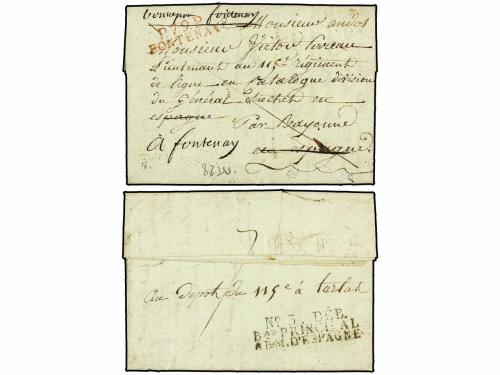 P.79.P.
FONTENAY
Monsieur
Monsieur Victor
Lieutenant au 115e régiment
de ligne en Catalogne division
du Général Suchet en
espagne Par Bayonne
A fontenay en espagne
au depot du 115e à tarbes
No. 5. DÉB.
Bau PRINCIPAL
ARM. D'ESPAGNE